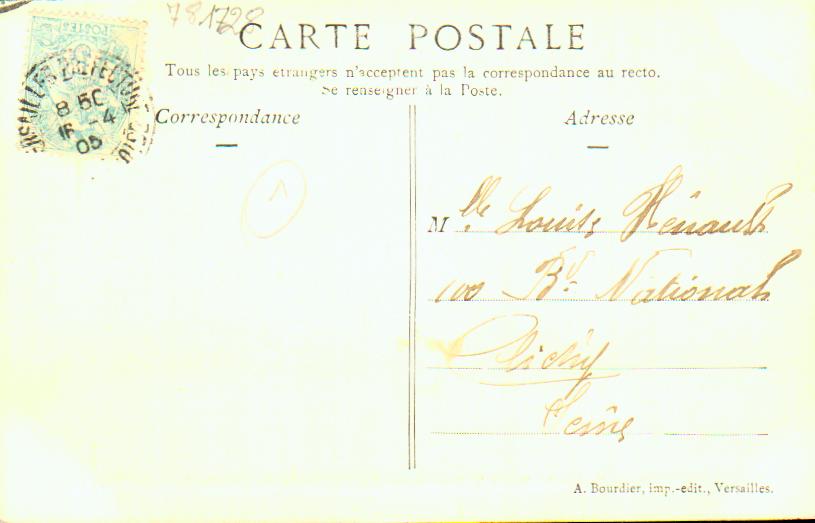 781728
CARTE POSTALE
Tous les pays étrangers n'acceptent pas la correspondance au recto.
Se renseigner à la Poste.
POSTES
8 50
16 -4
05
Correspondance
Adresse
1
Mlle Louise Hénault
100 Bd National
Clichy
Seine
A. Bourdier, imp.-edit., Versailles.